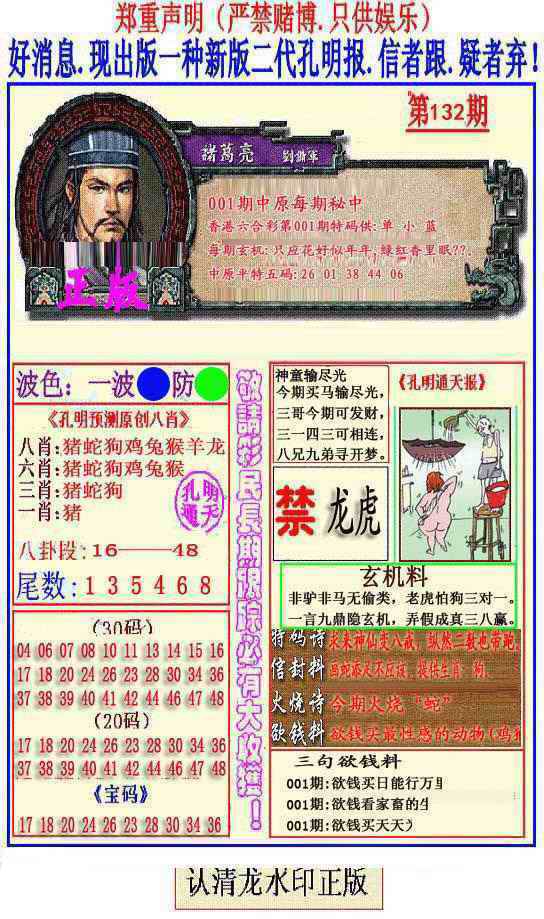 郑重声明（严禁赌博.只供娱乐）
好消息.现出版一种新版二代孔明报.信者跟.疑者弃!
第132期
諸葛亮
劉備軍
001期中原每期秘中
香港六合彩第001期特码供:单 小 蓝
每期玄机:只应花好似年年,绿红香里眠??.
中原平特五码:26 01 38 44 06
正版
波色：一波 防
《孔明预测原创八肖》
八肖:猪蛇狗鸡兔猴羊龙
六肖:猪蛇狗鸡兔猴
三肖:猪蛇狗
一肖:猪
孔明
通天
八卦段:16——48
尾数:135468
(30码)
04 06 07 08 09 10 13 14 15 16
17 18 20 24 26 23 28 30 34 36
37 38 39 40 41 42 44 46 47 48
(20码)
17 18 20 24 26 23 28 30 34 36
37 38 39 40 41 42 44 46 47 48
《宝码》
17 18 20 24 26 23 28 30 34 36
敬請彩民長期跟踪必有大收獲！
神童输尽光
今期买马输尽光，
三哥今期可发财，
三一四三可相连，
八兄九弟寻开梦。
《孔明通天报》
禁 龙虎
玄机料
非驴非马无偷类，老虎怕狗三对一。
一言九鼎隐玄机，弄假成真三八赢。
特码诗 未来神仙变八戒，纵然二数也带跑
信封料 画蛇添足不应该，提供生肖：狗
火烧诗 今期火烧“蛇”
欲钱料 欲钱买最性感的动物(鸡
三句欲钱料
001期:欲钱买日能行万里
001期:欲钱看家畜的
001期:欲钱买天天
认清龙水印正版